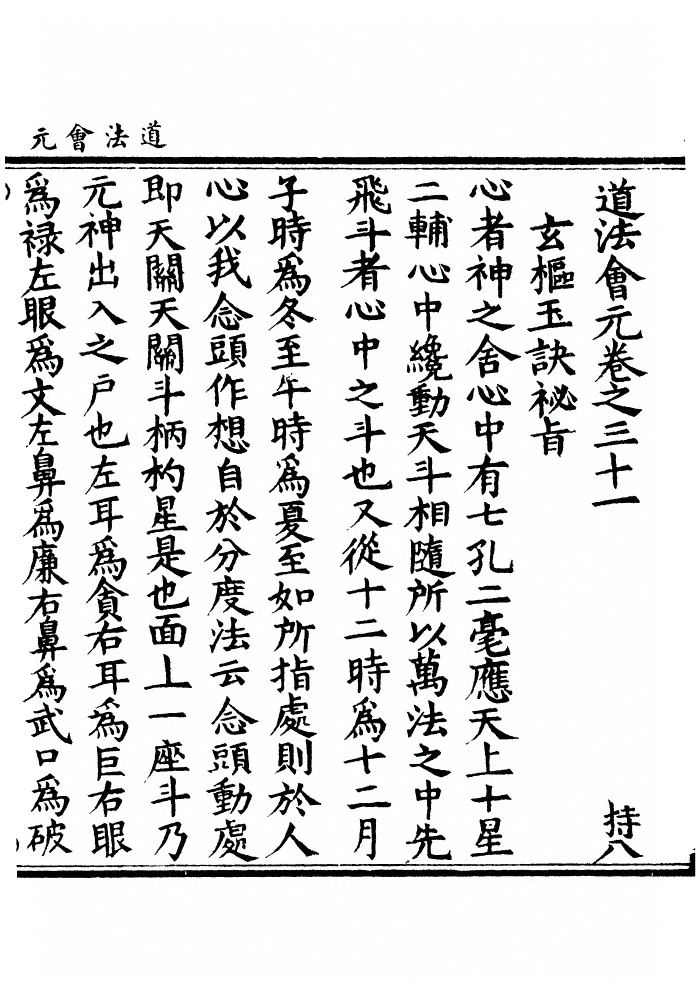 道法會元
道法會元卷之三十一 持八
玄樞玉訣祕旨
心者神之舍心中有七孔二毫應天上十星
二輔心中纔動天斗相隨所以萬法之中先
飛斗者心中之斗也又從十二時為十二月
子時為冬至午時為夏至如所指處則於人
心以我念頭作想自於分度法云念頭動處
即天關天關斗柄杓星是也面上一座斗乃
元神出入之戶也左耳為貪右耳為巨右眼
為祿左眼為文左鼻為廉右鼻為武口為破